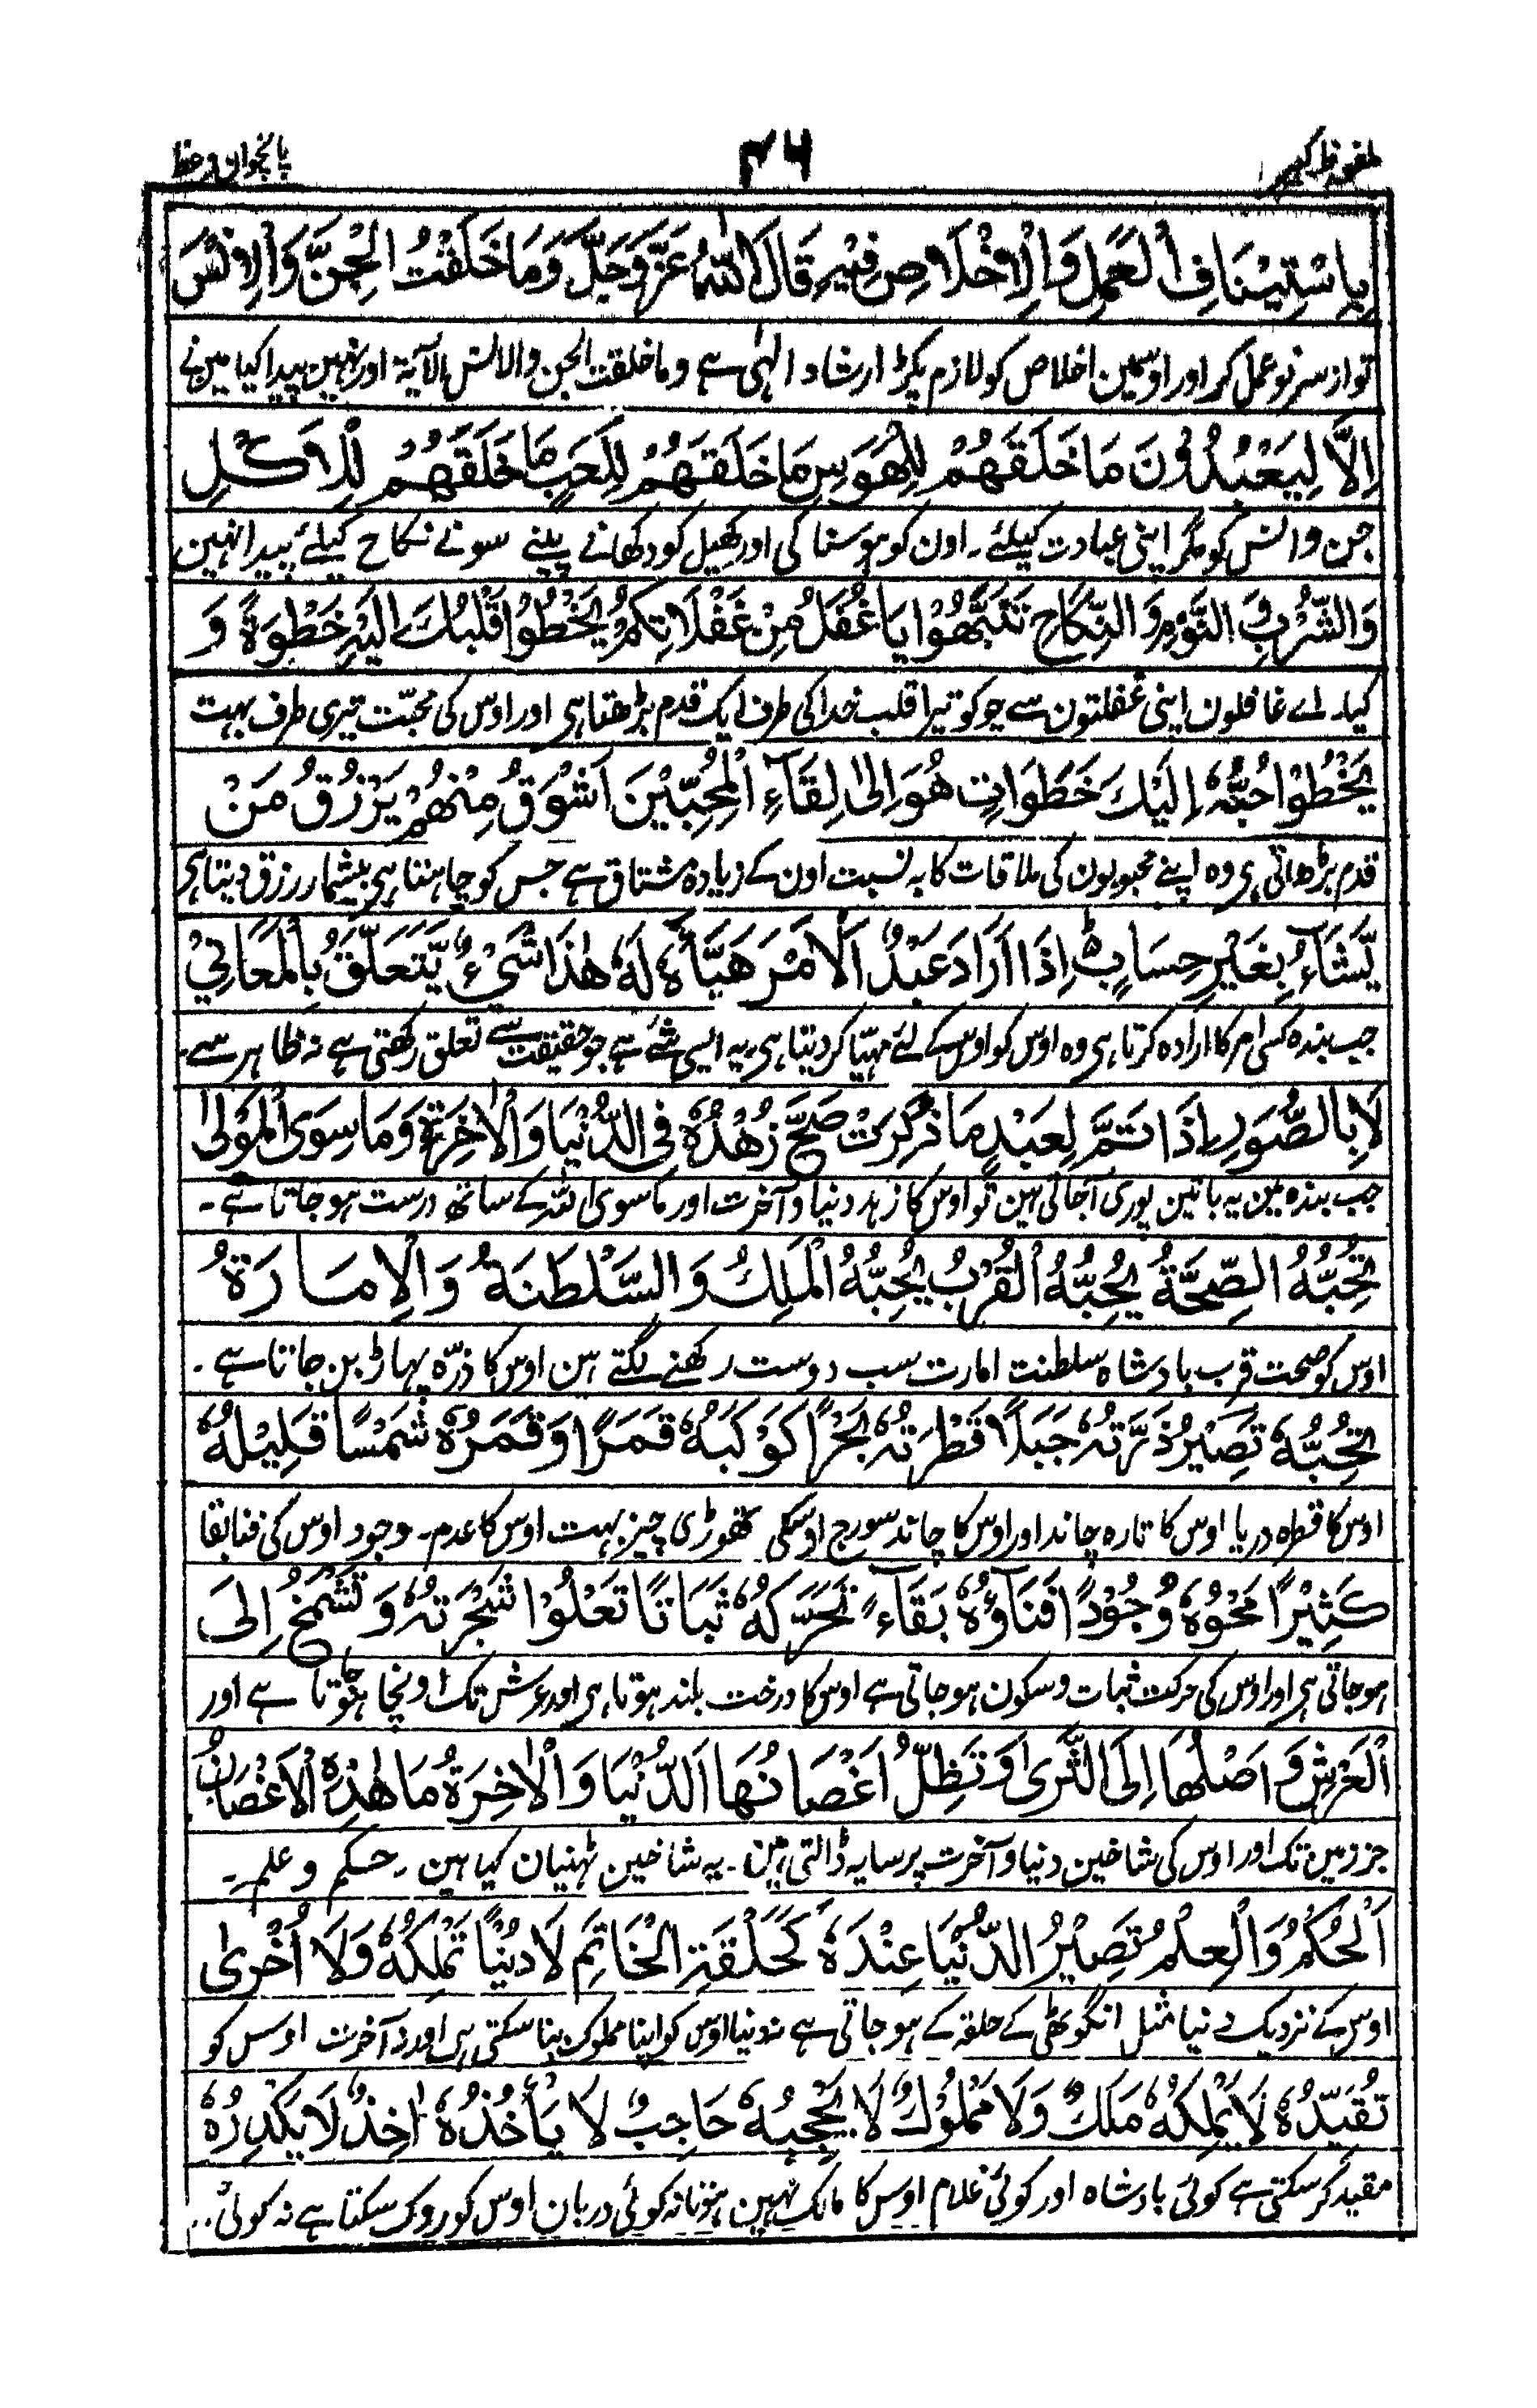 پانچوان وعظ
۴۶
بِاسْتِیْنَافِ الْعَمَلِ وَالْاِخْلَاصِ فِیْهِ قَالَ اللّٰهُ عَزَّوَجَلَّ وَمَا خَلَقْتُ الْجِنَّ وَالْاِنْسَ
تو از سرنو عمل کر اور اوسمین اخلاص کو لازم پکڑ ارشاد الٰہی ہے وما خلقت الجن والانس الآیۃ اور نہین پیدا کیا مین نے
اِلَّا لِیَعْبُدُوْنَ مَا خَلَقَهُمْ لِلْهَوَسِ مَا خَلَقَهُمْ لِلَّعِبِ مَا خَلَقَهُمْ لِلْاَكْلِ
جن وانس کو مگر اپنی عبادت کیلئے۔ اون کو ہوسنا کی اور کھیل کود کھانے پینے سونے نکاح کیلئے پیدا نہین
وَالشُّرْبِ وَ النَّوْمِ وَالنِّكَاحِ تَنَبَّهُوْا یَا غُفَلُ مِنْ غَفَلَاتِكُمْ یَخْطُوْا قَلْبُكَ اِلَیْهِ خَطْوَةً وَ
کیا۔ اے غافلون اپنی غفلتون سے چوکو تیرا قلب خدا کی طرف ایک قدم بڑھتا ہی اور اوس کی محبّت تیری طرف بہت
یَخْطُوْا حُبُّهٗ اِلَیْكَ خَطَوَاتٍ هُوَ اِلٰی لِقَآءِ الْمُحِبِّیْنَ اَشْوَقُ مِنْهُمْ یَرْزُقُ مَنْ
قدم بڑھاتی ہی وہ اپنے محبوبون کی ملاقات کا بہ نسبت اون کے زیادہ مشتاق ہے جس کو چاہتا ہی بیشمار رزق دیتا ہی
یَّشَآءُ بِغَیْرِ حِسَابٍ اِذَا اَرَادَ عَبْدٌ اَلْاَمْرَ هَیَّأَهٗ لَهٗ هٰذَا شَیْءٌ یَّتَعَلَّقُ بِالْمَعَانِیْ
جب بندہ کسی امر کا ارادہ کرتا ہی وہ اوس کو اوس کے لئے مہیّا کر دیتا ہی یہ ایسی شئے ہے جو حقیقت سے تعلق رکھتی ہے نہ ظاہر سے۔
لَا بِالصُّوَرِ اِذَا تَمَّ لِعَبْدٍ مَا ذَكَرْتُ صَحَّ زُهْدُهٗ فِی الدُّنْیَا وَالْاٰخِرَةِ وَمَا سِوَی الْمَوْلٰی
جب بندہ مین یہ باتین پوری آجاتی ہین تو اوس کا زہد دنیا و آخرت اور ماسوی اللّٰہ کے ساتھ درست ہو جاتا ہے۔
تُحِبُّهُ الصِّحَّةُ یُحِبُّهُ الْقُرْبُ یُحِبُّهُ الْمَلِكُ وَالسَّلْطَنَةُ وَالْاِمَارَةُ
اوس کو صحت قرب بادشاہ سلطنت امارت سب دوست رکھنے لگتے ہین اوس کا ذرّہ پہاڑ بن جاتا ہے۔
تُحِبُّهٗ تَصِیْرُ ذَرَّتُهٗ جَبَلًا قَطْرَتُهٗ بَحْرًا كَوْكَبُهٗ قَمَرًا وَقَمَرُهٗ شَمْسًا قَلِیْلُهٗ
اوس کا قطرہ دریا اوس کا تارہ چاند اور اوس کا چاند سورج اوسکی تھوڑی چیز بہت اوس کا عدم۔ وجود اوس کی فنا بقا
كَثِیْرًا مَحْوُهٗ وُجُوْدًا فَنَاؤُهٗ بَقَآءً تَحَرُّكُهٗ ثَبَاتًا تَعْلُوْا شَجَرَتُهٗ وَتَشْمَخُ اِلَی
ہو جاتی ہی اور اوس کی حرکت ثبات و سکون ہو جاتی ہے اوس کا درخت بلند ہوتا ہی اور عرش تک اونچا ہوتا جاتا ہے اور
الْعَرْشِ وَ اَصْلُهَا اِلَی الثَّرٰی وَتَظِلُّ اَغْصَانُهَا الدُّنْیَا وَالْاٰخِرَةَ مَا هٰذِهِ الْاَغْصَانُ
جز زمین تک اور اوس کی شاخین دنیا و آخرت پر سایہ ڈالتی ہین۔ یہ شاخین ٹہنیان کیا ہین۔ حکم و علم۔
اَلْحُكْمُ وَالْعِلْمُ تَصِیْرُ الدُّنْیَا عِنْدَهٗ كَحَلْقَةِ الْخَاتَمِ لَا دُنْیًا تَمْلِكُهٗ وَلَا اُخْرٰی
اوس کے نزدیک دنیا مثل انگوٹھی کے حلقہ کے ہو جاتی ہے نہ دنیا اوس کو اپنا مملوک بنا سکتی ہی اور نہ آخرت اوس کو
تُقَیِّدُهٗ لَا یَمْلِكُهٗ مَلِكٌ وَلَا مَمْلُوْكٌ لَا یَحْجُبُهٗ حَاجِبٌ لَا یَأْخُذُهٗ اٰخِذٌ لَا یَكْدِرُهٗ
مقید کر سکتی ہے کوئی بادشاہ اور کوئی غلام اوس کا مالک نہین ہوتا نہ کوئی دربان اوس کو روک سکتا ہے نہ کوئی..